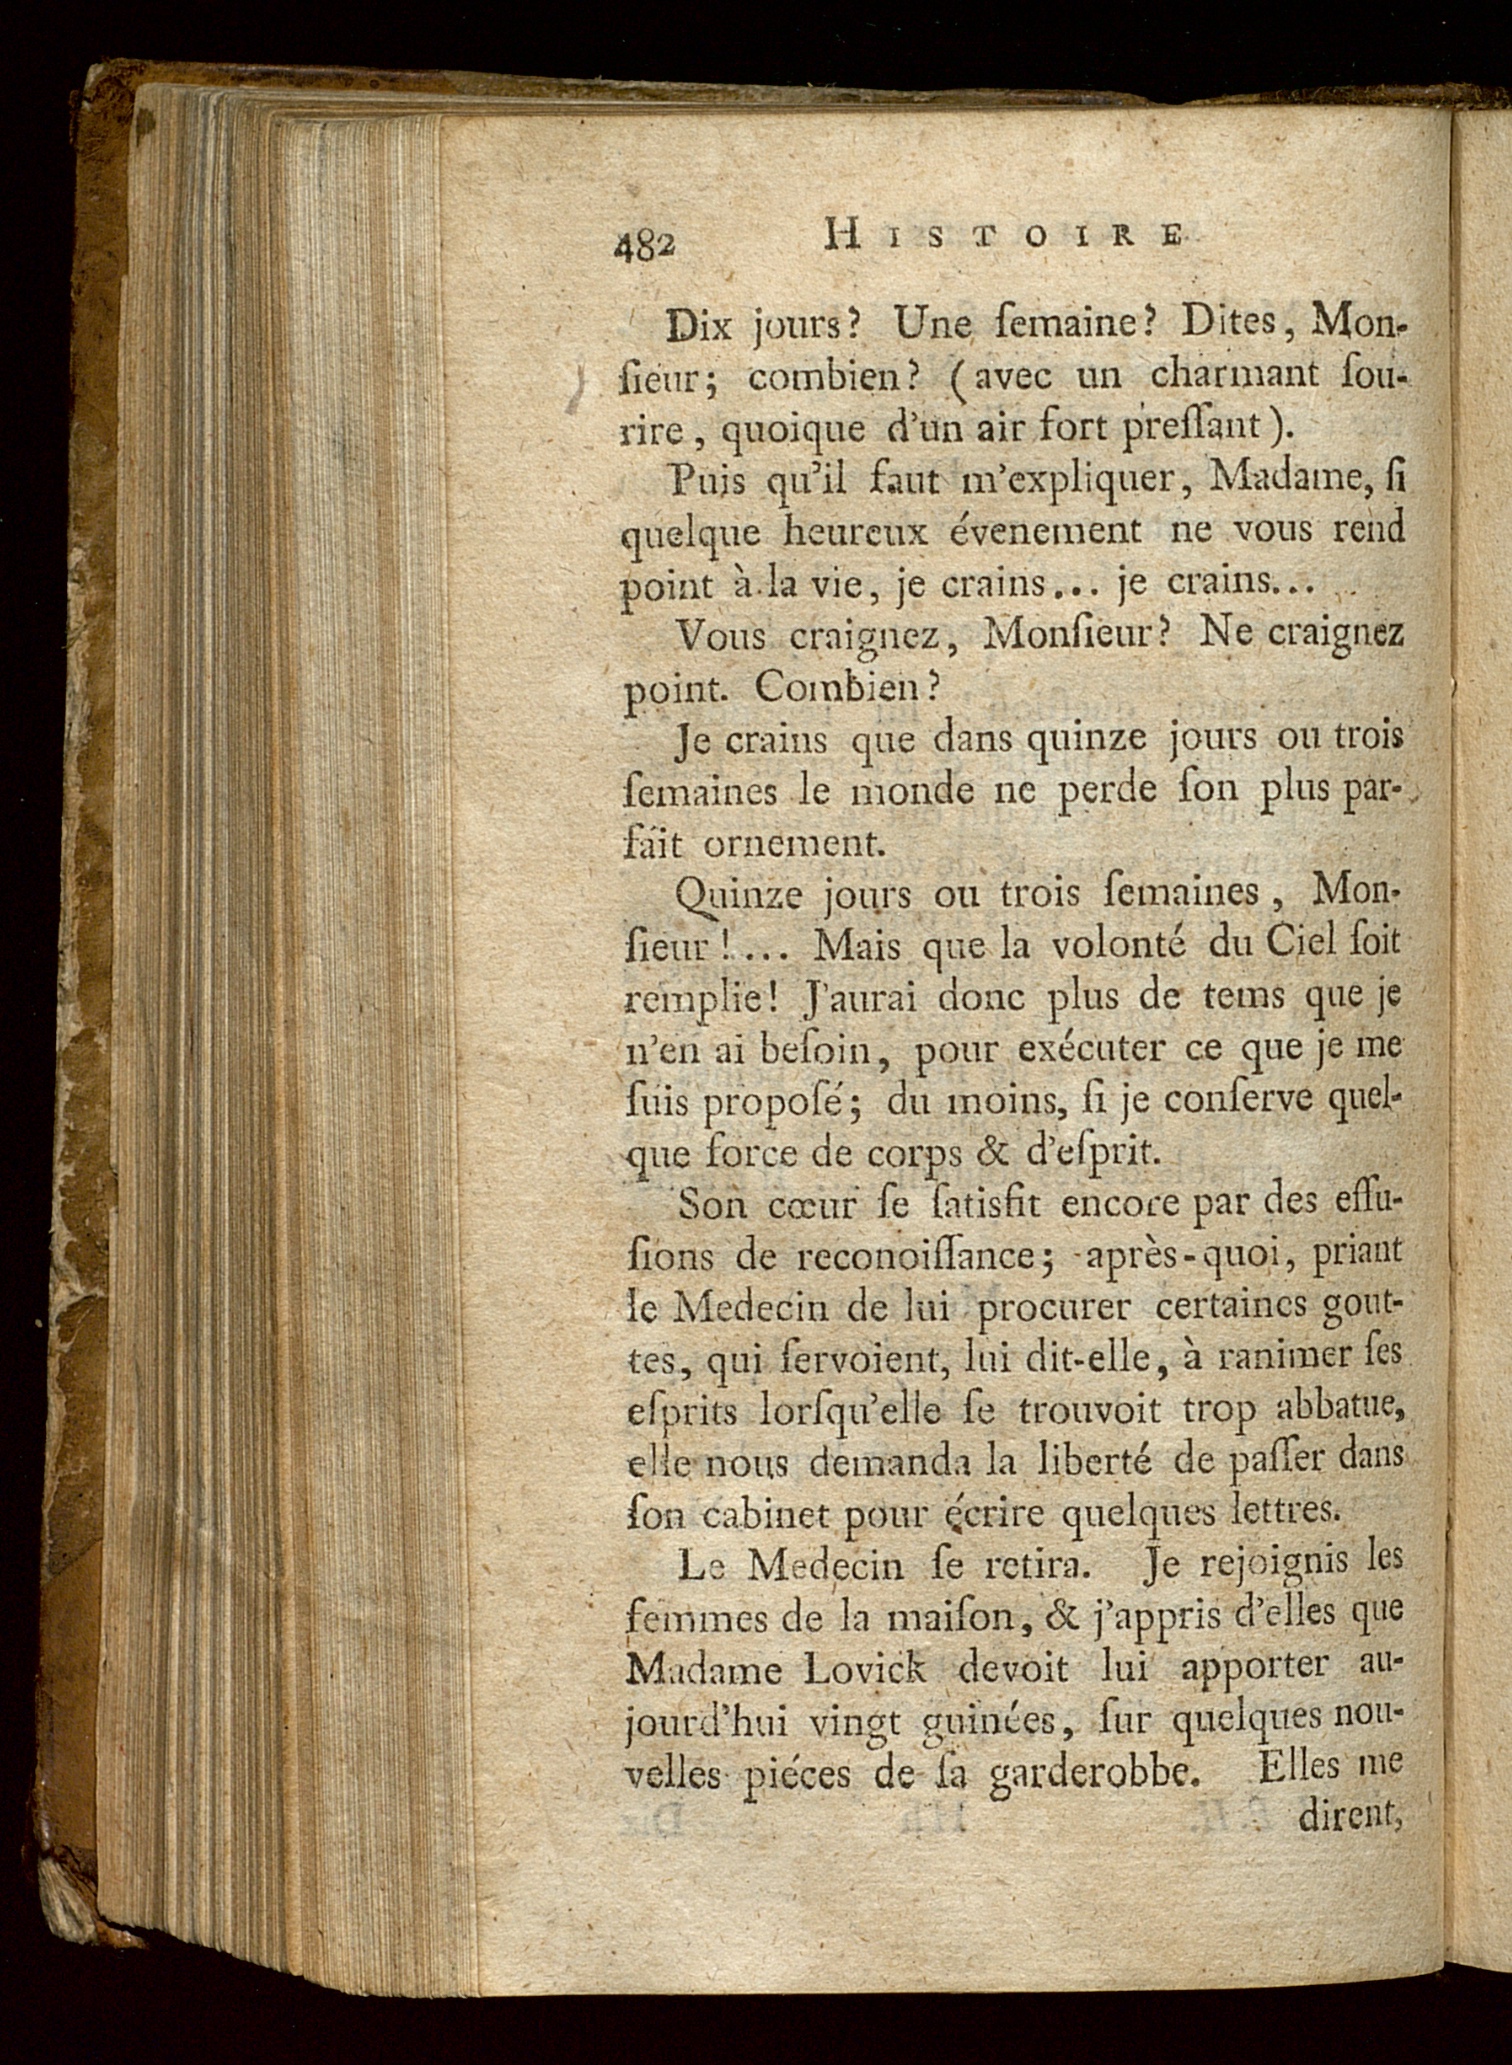 482 HISTOIRE
Dix jours? Une ſemaine? Dites, Mon-
ſieur; combien? (avec un charmant ſou-
rire, quoique d'un air fort preſſant).
Puis qu'il faut m'expliquer, Madame, ſi
quelque heureux évenement ne vous rend
point à la vie, je crains... je crains...
Vous craignez, Monſieur? Ne craignez
point. Combien?
Je crains que dans quinze jours ou trois
ſemaines le monde ne perde ſon plus par-
fait ornement.
Quinze jours ou trois ſemaines, Mon-
ſieur!... Mais que la volonté du Ciel ſoit
remplie! J'aurai donc plus de tems que je
n'en ai beſoin, pour exécuter ce que je me
ſuis propoſé; du moins, ſi je conſerve quel-
que force de corps & d'eſprit.
Son cœur ſe ſatisfit encore par des effu-
ſions de reconoiſſance; après-quoi, priant
le Medecin de lui procurer certaines gout-
tes, qui ſervoient, lui dit-elle, à ranimer ſes
eſprits lorſqu'elle ſe trouvoit trop abbatue,
elle nous demanda la liberté de paſſer dans
ſon cabinet pour écrire quelques lettres.
Le Medecin ſe retira. Je rejoignis les
femmes de la maiſon, & j'appris d'elles que
Madame Lovick devoit lui apporter au-
jourd'hui vingt guinées, ſur quelques nou-
velles piéces de ſa garderobbe. Elles me
dirent,